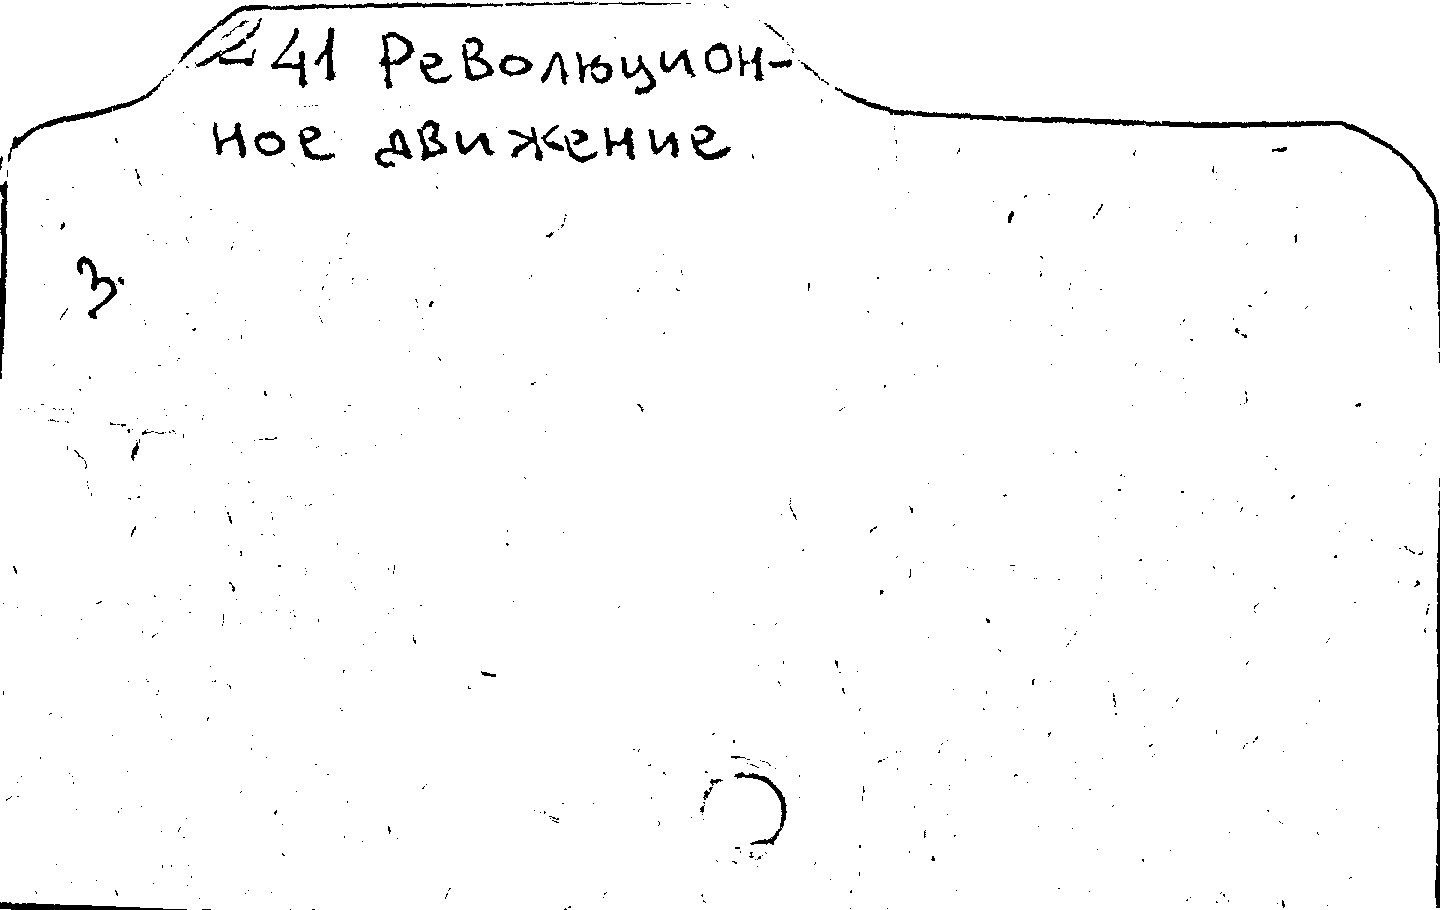 241 Революцион-
ное движение
3.